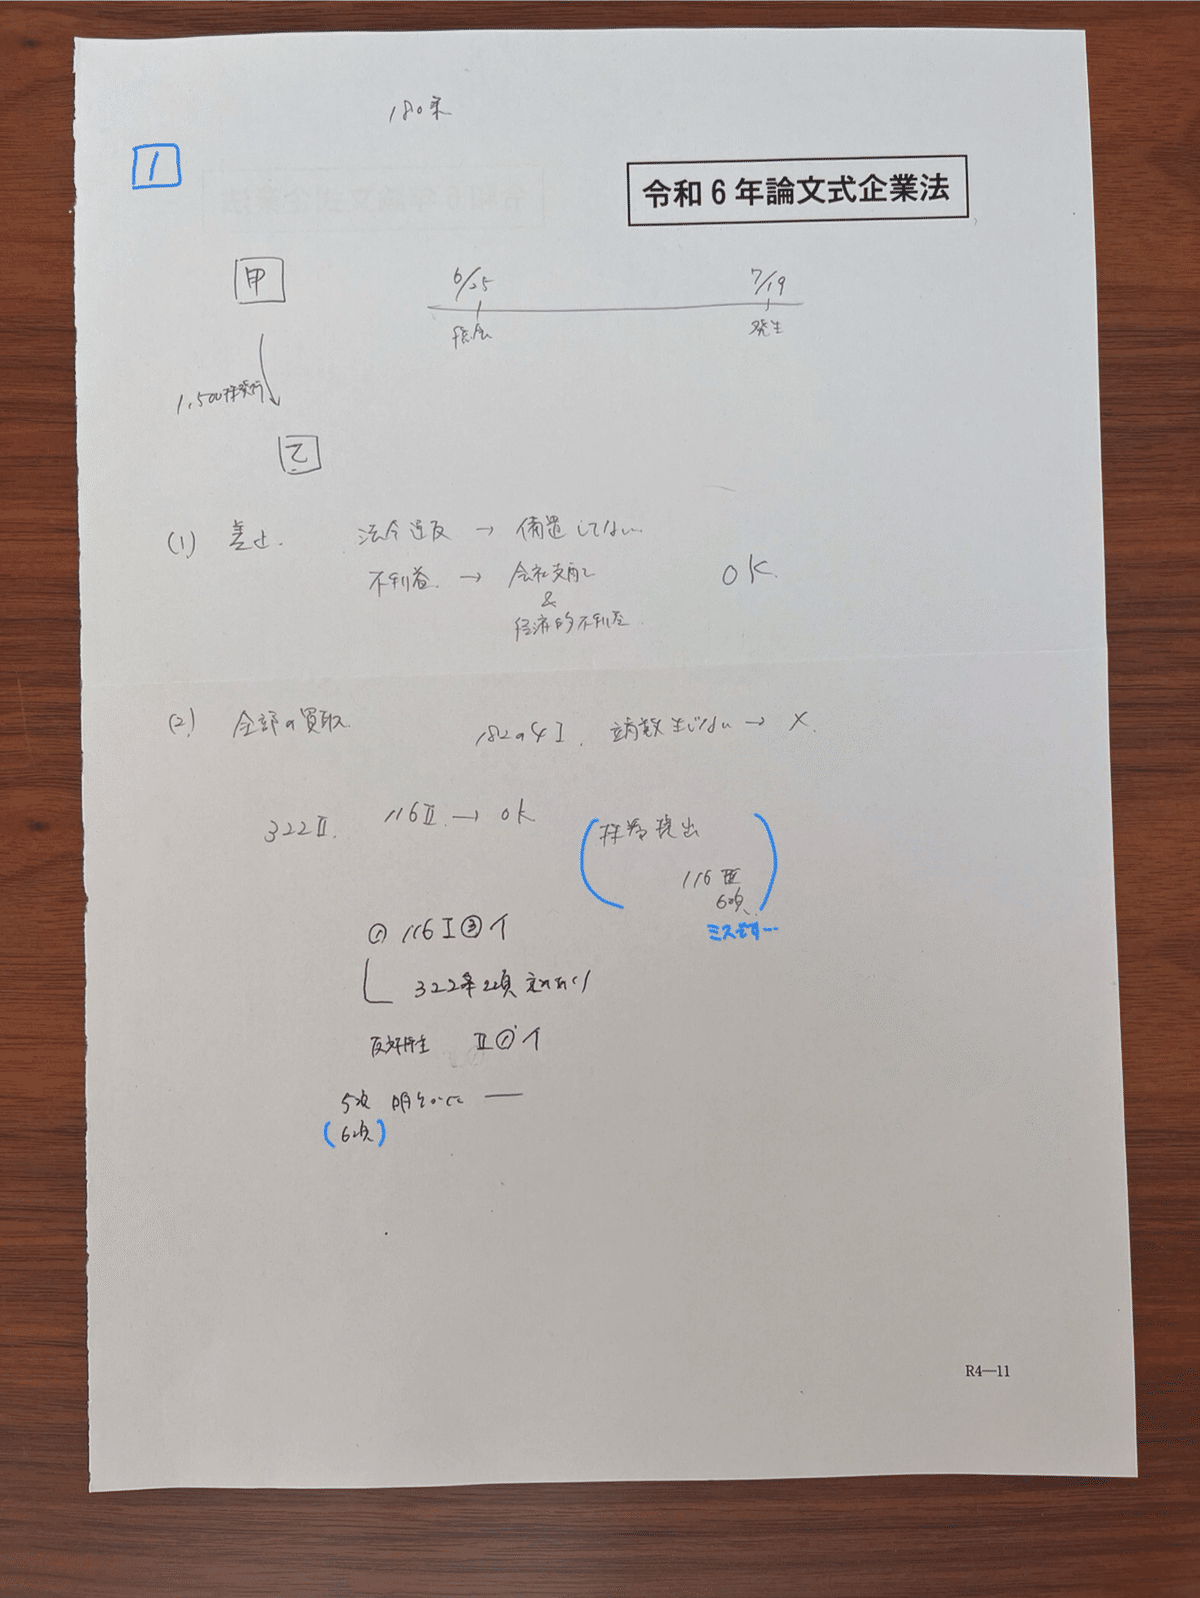 180条
1
令和6年論文式企業法
甲
6/25
7/19
総会
発生
1,500株発行
乙
(1) 差止. 法令違反 → 備置してない
不利益 → 会社支配
&
経済的不利益
OK.
(2) 全部の買取 182の4Ⅰ. 端数生じない → ×.
322Ⅱ. 116Ⅱ → OK
株券提出
116Ⅲ
6項
ミスです…
① 116Ⅰ③イ
322条2項 定めあり
反対株主 Ⅱ①イ
5項 明らかに —
(6項)
R4—11